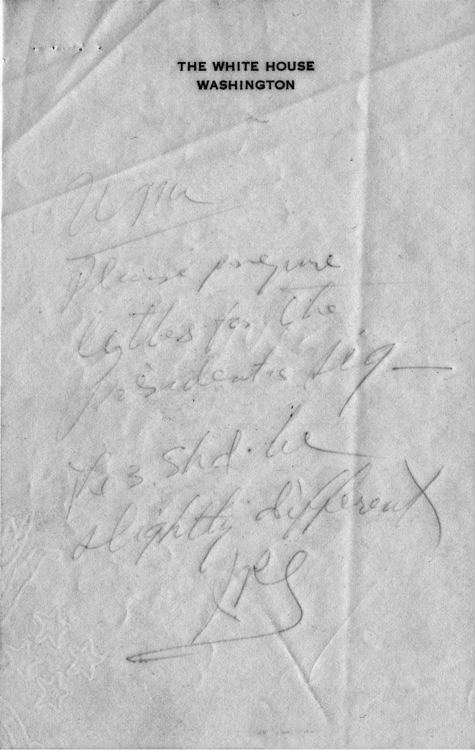 THE WHITE HOUSE
WASHINGTON
Please prepare
letters for the
president's sig—
shd. be
slightly different